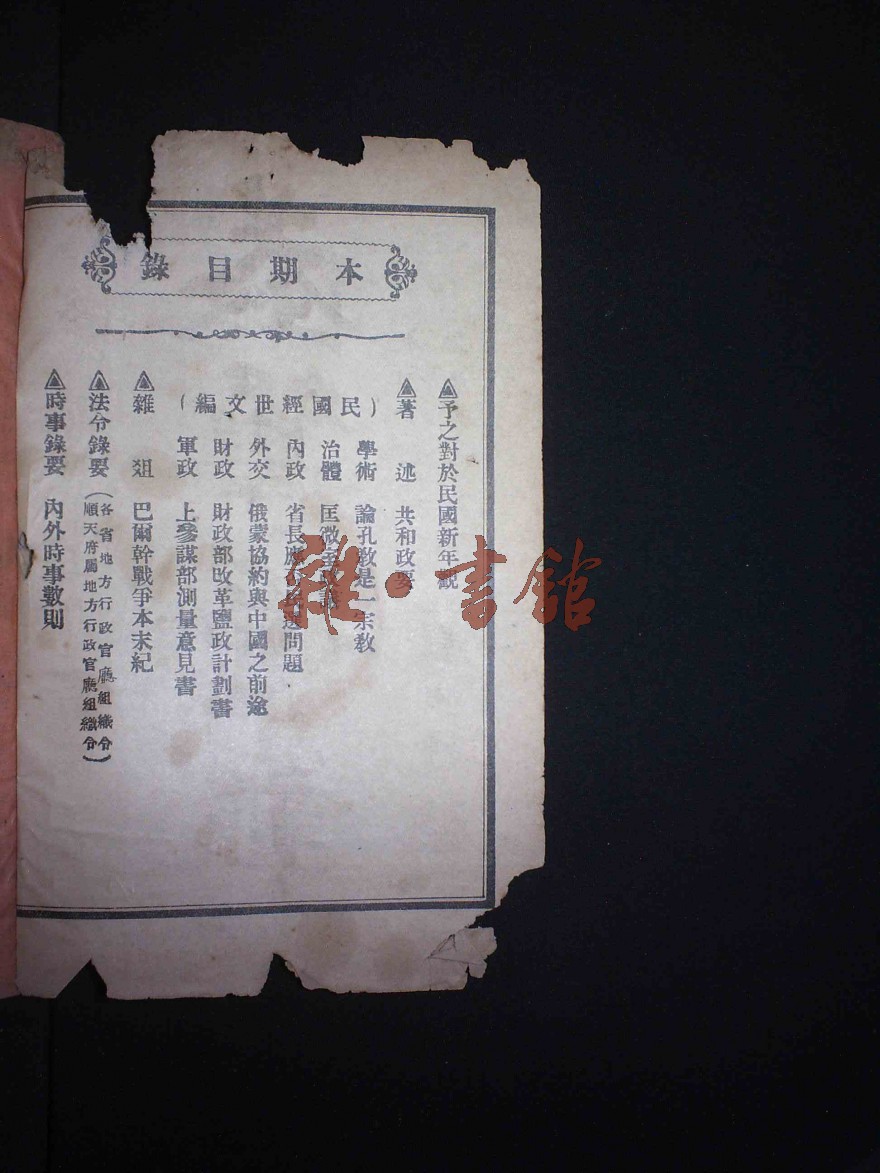 本期目錄
予之對於民國新年觀
著述 共和政要
(民國經世文編)
學術 論孔教是一宗教
治體 匡
內政 省長 問題
外交 俄蒙協約與中國之前途
財政 財政部改革鹽政計劃書
軍政 上參謀部測量意見書
雜俎 巴爾幹戰爭本末紀
法令錄要 (各省地方行政官廳組織令
順天府屬地方行政官廳組織令)
時事錄要 內外時事數則
雜·書館